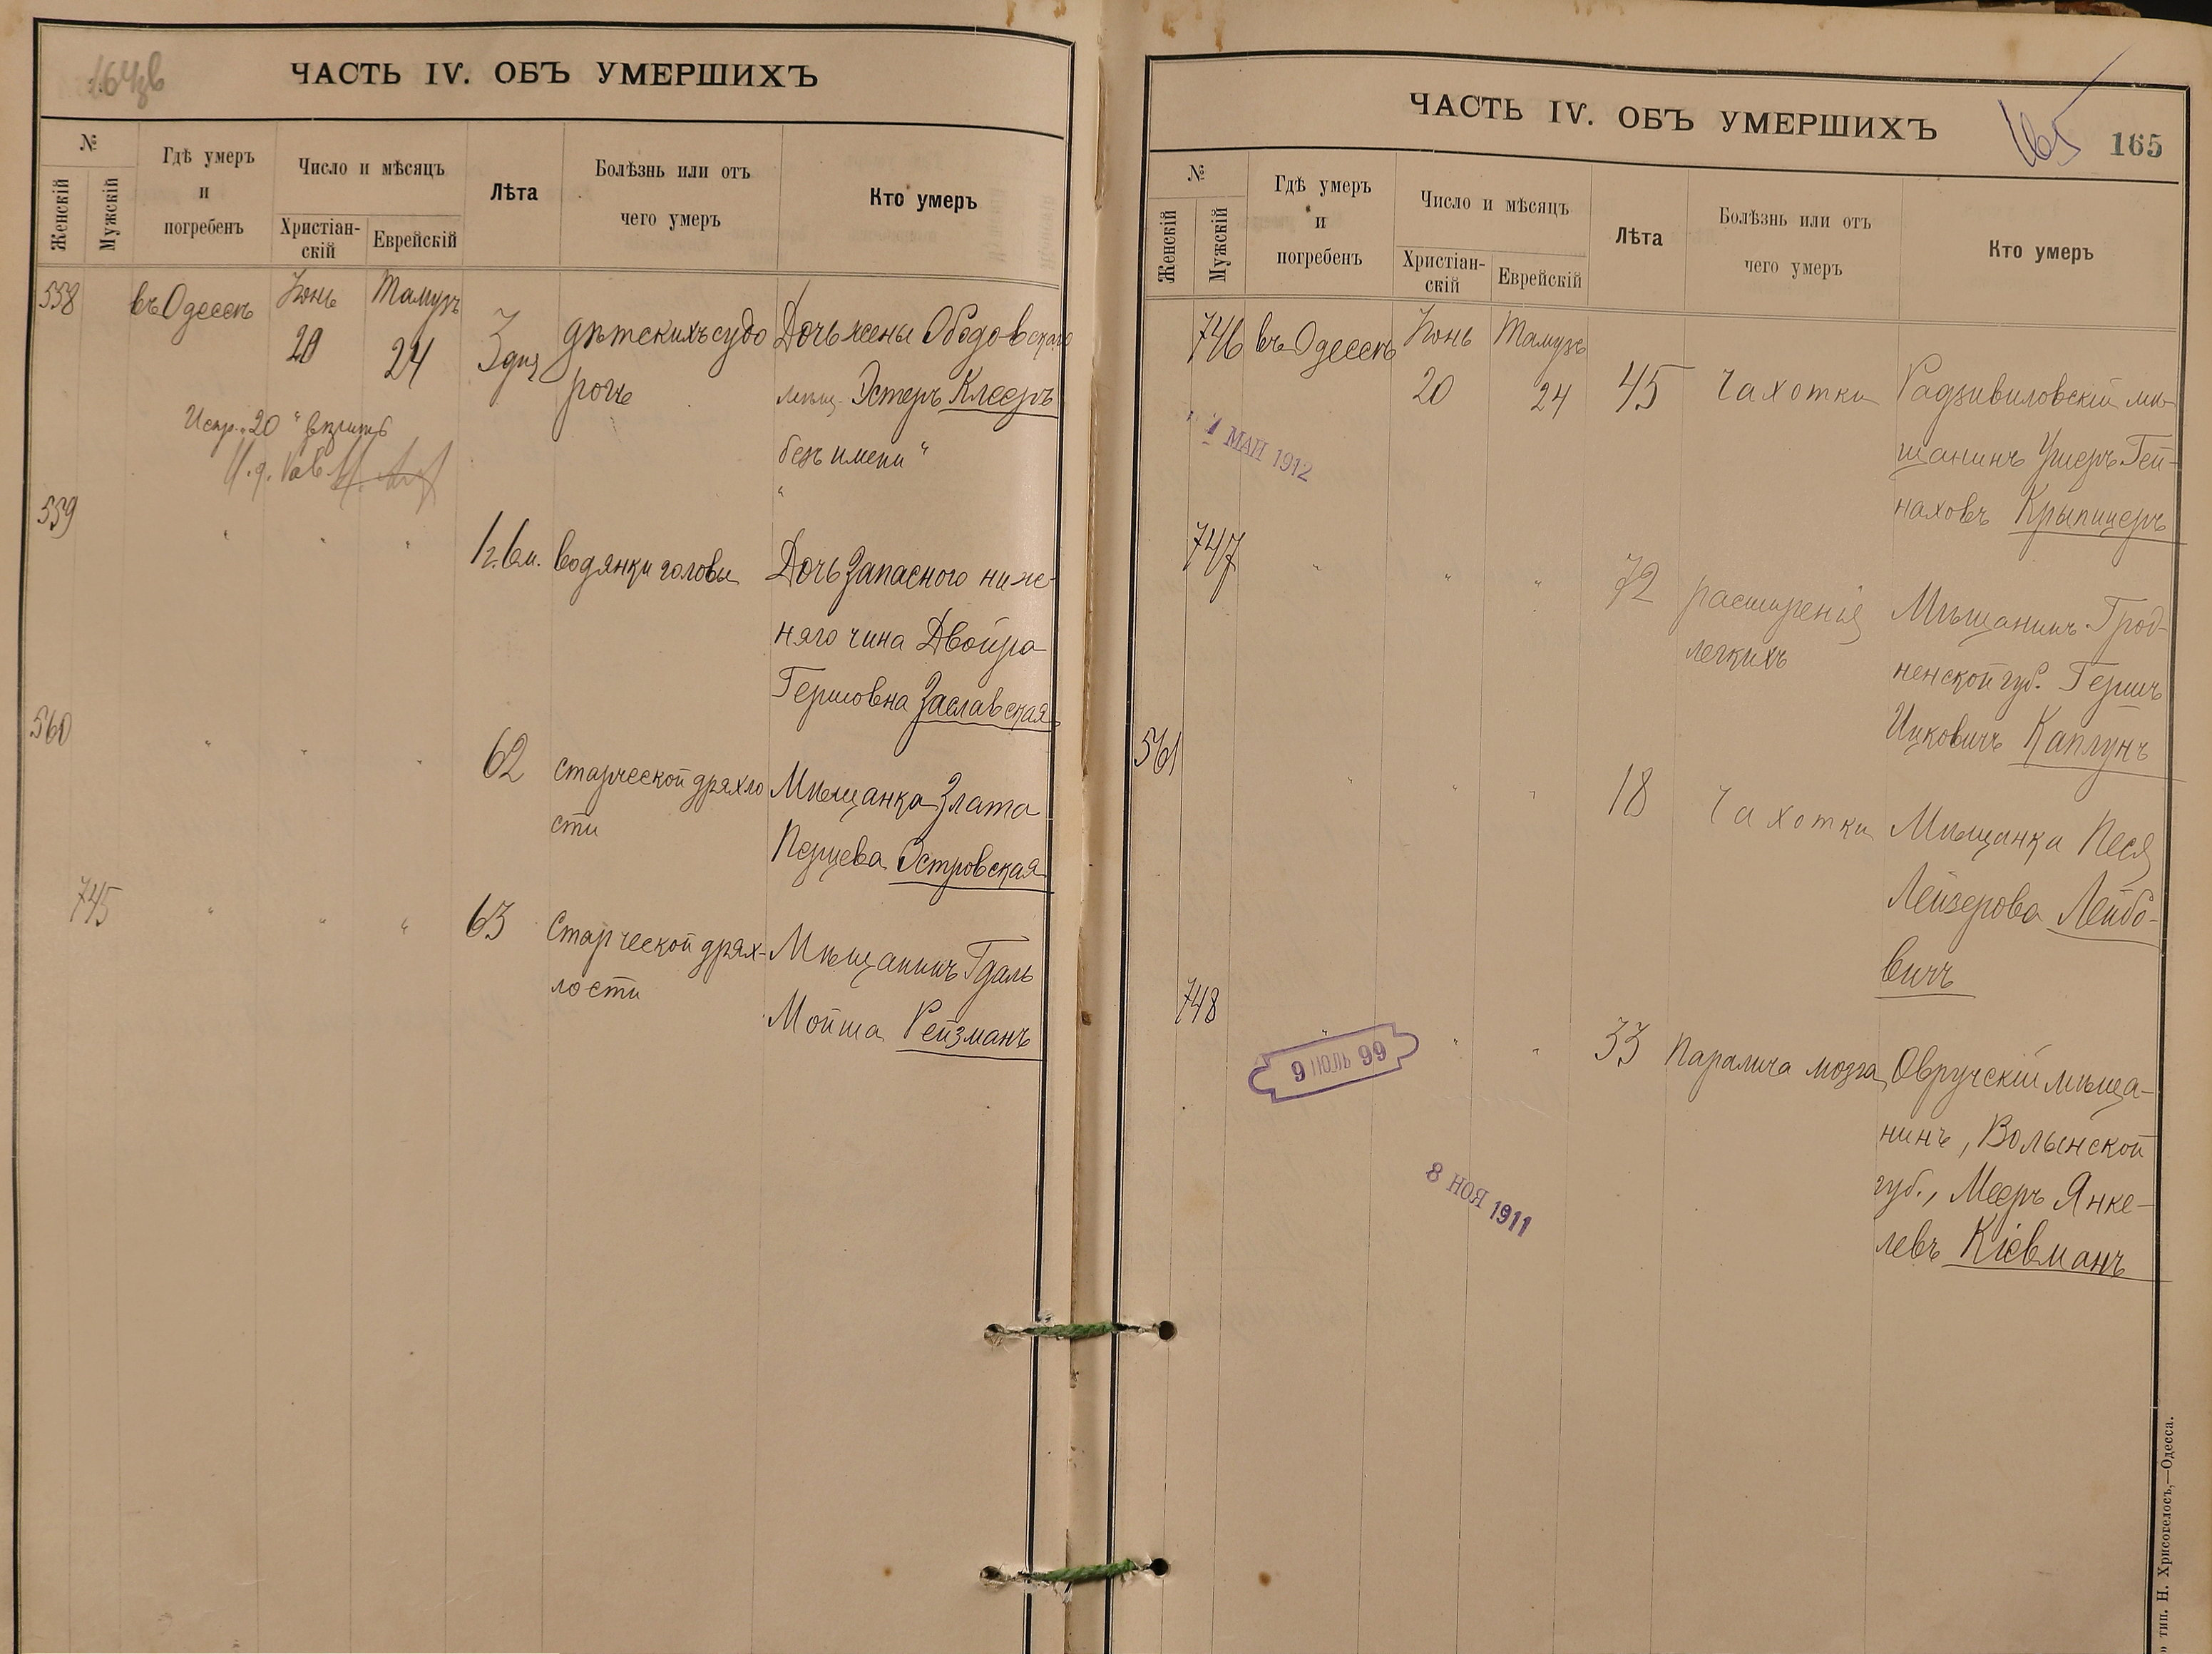 164 об
ЧАСТЬ IV. ОБЪ УМЕРШИХЪ
№
Женскій
Мужскій
Гдѣ умеръ
и
погребенъ
Число и мѣсяцъ
Христіан-
скій
Еврейскій
Лѣта
Болѣзнь или отъ
чего умеръ
Кто умеръ
558 въ Одессѣ Іюнь Тамузъ
20 24 3 дня дѣтскихъ судо Дочь жены Ободовскаго
роги мѣщ. Эстеръ Клееръ
безъ имени "
Испр. 20 "
И. д. Рав
559 " " " 1 г. 6 м. водянки головы Дочь Запаснаго ниж-
няго чина Двойра
Гершовна Заславская
560 " " " 62 старческой дряхло Мѣщанка Злата
сти Перцева Островская
745 " " " 63 Старческой дрях- Мѣщанинъ Гдаль
лости Мойша Рейзманъ
ЧАСТЬ IV. ОБЪ УМЕРШИХЪ
165 165
№
Женскій
Мужскій
Гдѣ умеръ
и
погребенъ
Число и мѣсяцъ
Христіан-
скій
Еврейскій
Лѣта
Болѣзнь или отъ
чего умеръ
Кто умеръ
746 въ Одессѣ Іюнь Тамузъ
20 24 45 Чахотки Радзивиловскій мѣ-
щанинъ Ушеръ Гей-
наховъ Крыпицеръ
МАЙ 1912
747 " " " 72 расширенія Мѣщанинъ Грод-
легкихъ ненской губ. Гершъ
Ицковичъ Каплунъ
561 " " " 18 Чахотки Мѣщанка Песя
Лейзерова Лейбо-
вичъ
748 " " " 33 Паралича мозга Овручскій мѣща-
нинъ, Волынской
губ., Мееръ Янке-
левъ Кіевманъ
9 ІЮЛЬ 99
8 НОЯ 1911
тип. Н. Хрисогелосъ,—Одесса.